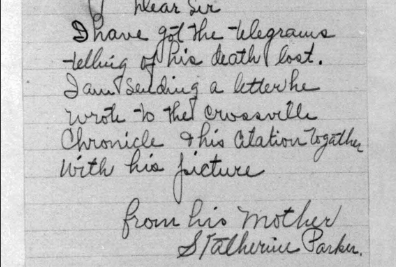 Dear Sir
I have got the telegrams
telling of his death lost.
I am sending a letter he
wrote to the Crossville
Chronicle & his Citation togather
With his picture
from his Mother
Katherine Parker.